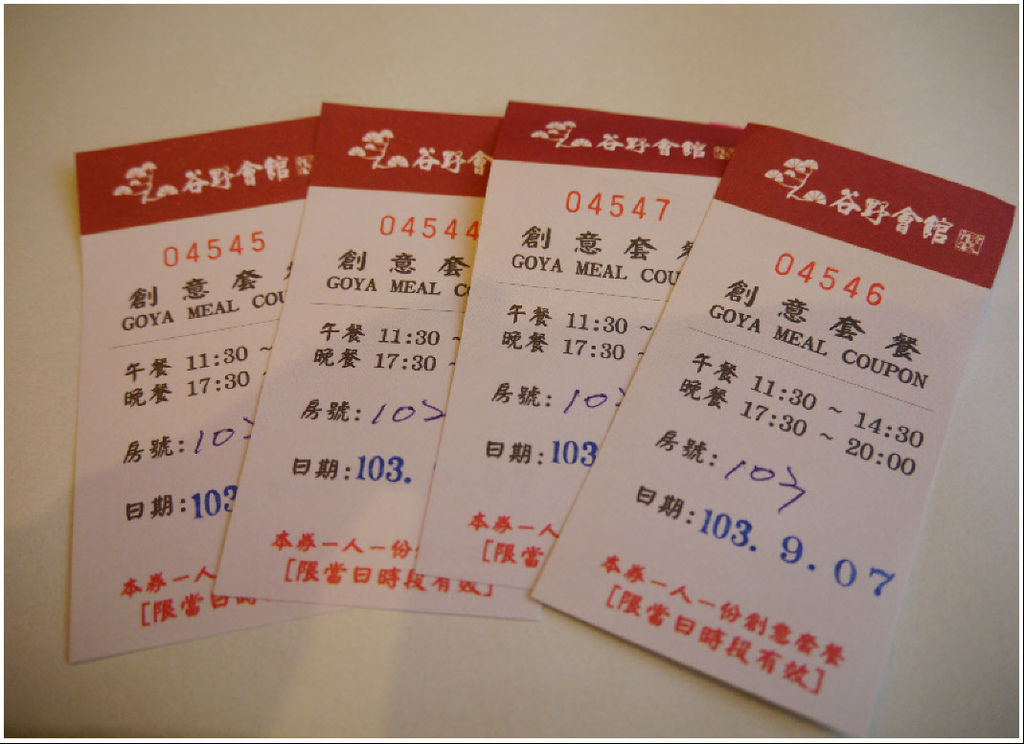 谷野會館
04545
創意套
GOYA MEAL COU
午餐 11:30 ~
晚餐 17:30
房號: 10
日期: 103
本券一人
[限當日時
谷野會
04544
創意套
GOYA MEAL C
午餐 11:30
晚餐 17:30
房號: 10>
日期: 103.
本券一人一份
[限當日時段有效]
谷野會館
04547
創意套
GOYA MEAL COU
午餐 11:30 ~
晚餐 17:30 ~
房號: 10
日期: 103
本券一人
[限當
谷野會館
04546
創意套餐
GOYA MEAL COUPON
午餐 11:30 ~ 14:30
晚餐 17:30 ~ 20:00
房號: 10>
日期: 103. 9. 07
本券一人一份創意套餐
[限當日時段有效]